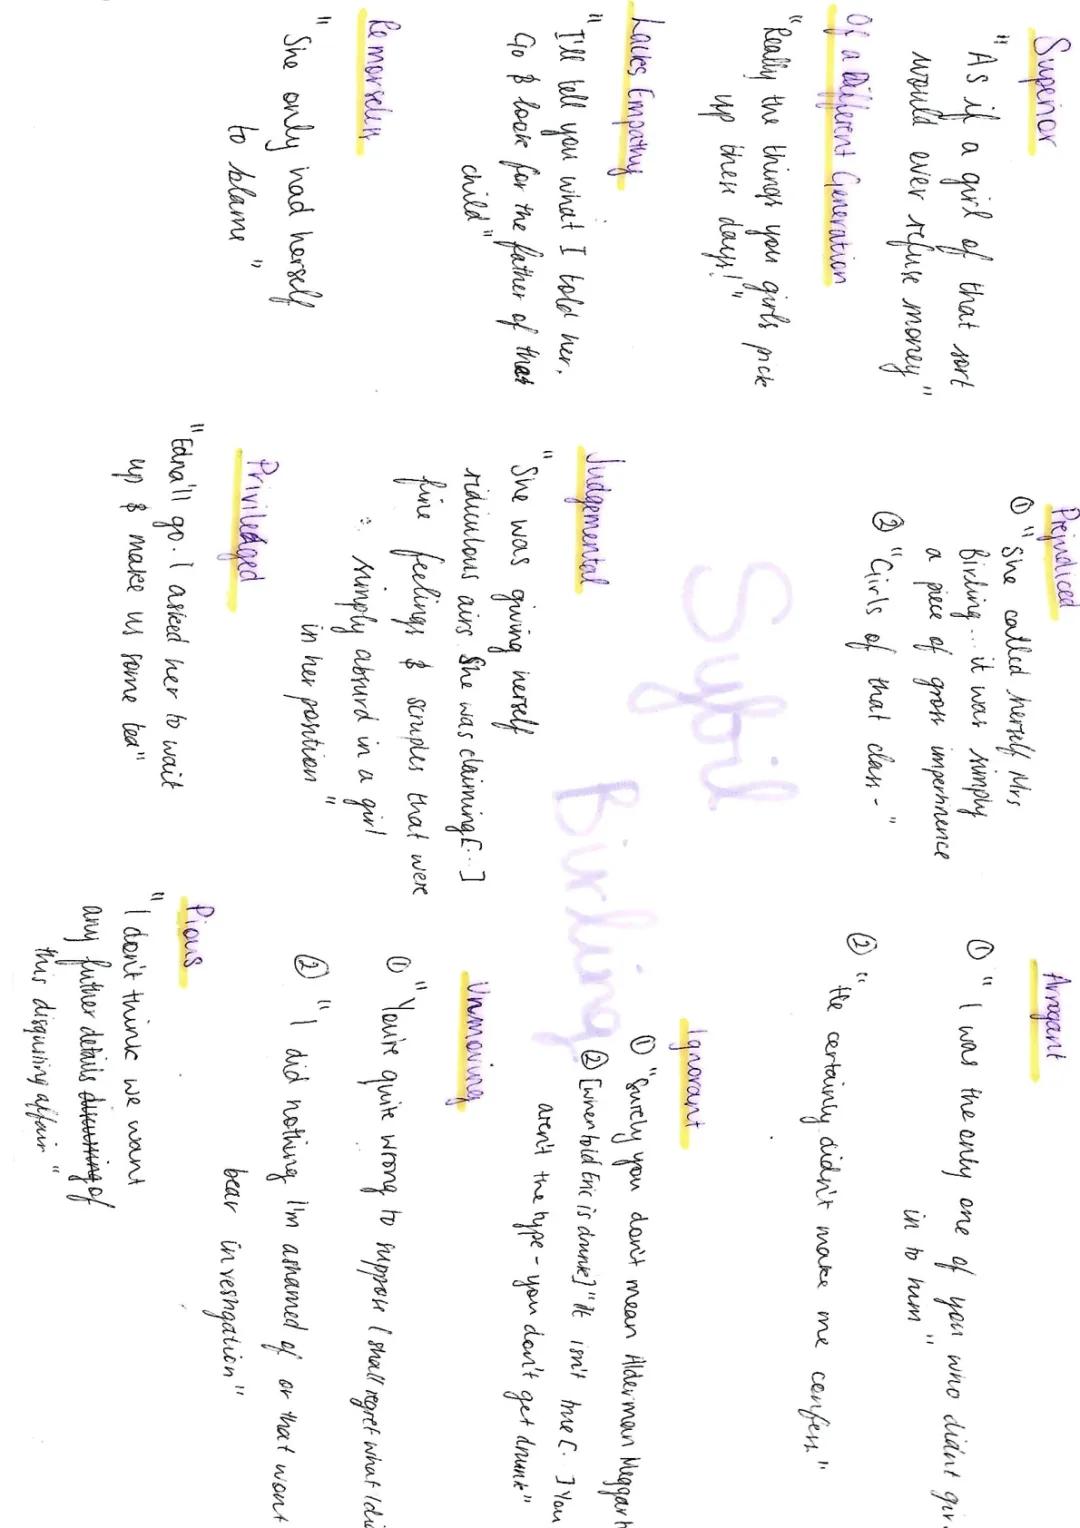 Superior
"As if a girl of that sort
would ever refuse money"
Of a Different Generation
"Really the things you girls pick
up these days!"
Lacks Empathy
"I'll tell you what I told her.
Go & look for the father of that
child"
Remorseless
"She only had herself
to blame"
Prejudiced
① "She called herself Mrs
Birling... it was simply
a piece of gross impertinence
② "Girls of that class-"
Sybil
Birling
Judgemental
"She was giving herself
ridiculous airs. She was claiming [...]
fine feelings & scruples that were
simply absurd in a girl
in her position"
Priviledged
"Edna'll go. I asked her to wait
up & make us some tea"
Arrogant
① "I was the only one of you who didn't giv
in to him"
② "He certainly didn't make me confess"
Ignorant
① "Surely you don't mean Alderman Meggarh
② [when told Eric is drunk] "It isn't true [...] You
aren't the type - you don't get drunk"
Unmoving
① "You're quite wrong to suppose I shall regret what I di
② "I did nothing I'm ashamed of or that won't
bear investigation"
Pious
"I don't think we want
any further details discussing of
this disgusting affair"